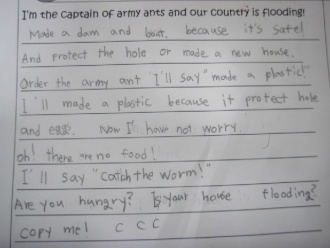 I'm the captain of army ants and our country is flooding!
Made a dam and boat. because it's safe!
And protect the hole or made a new house.
Order the army ant "I'll say" made a plastic!"
I'll made a plastic because it protect hole
and eggs. Now I have not worry.
oh! there are no food!
I'll say "Catch the worm!"
Are you hungry? Is your house flooding?
copy me! C C C